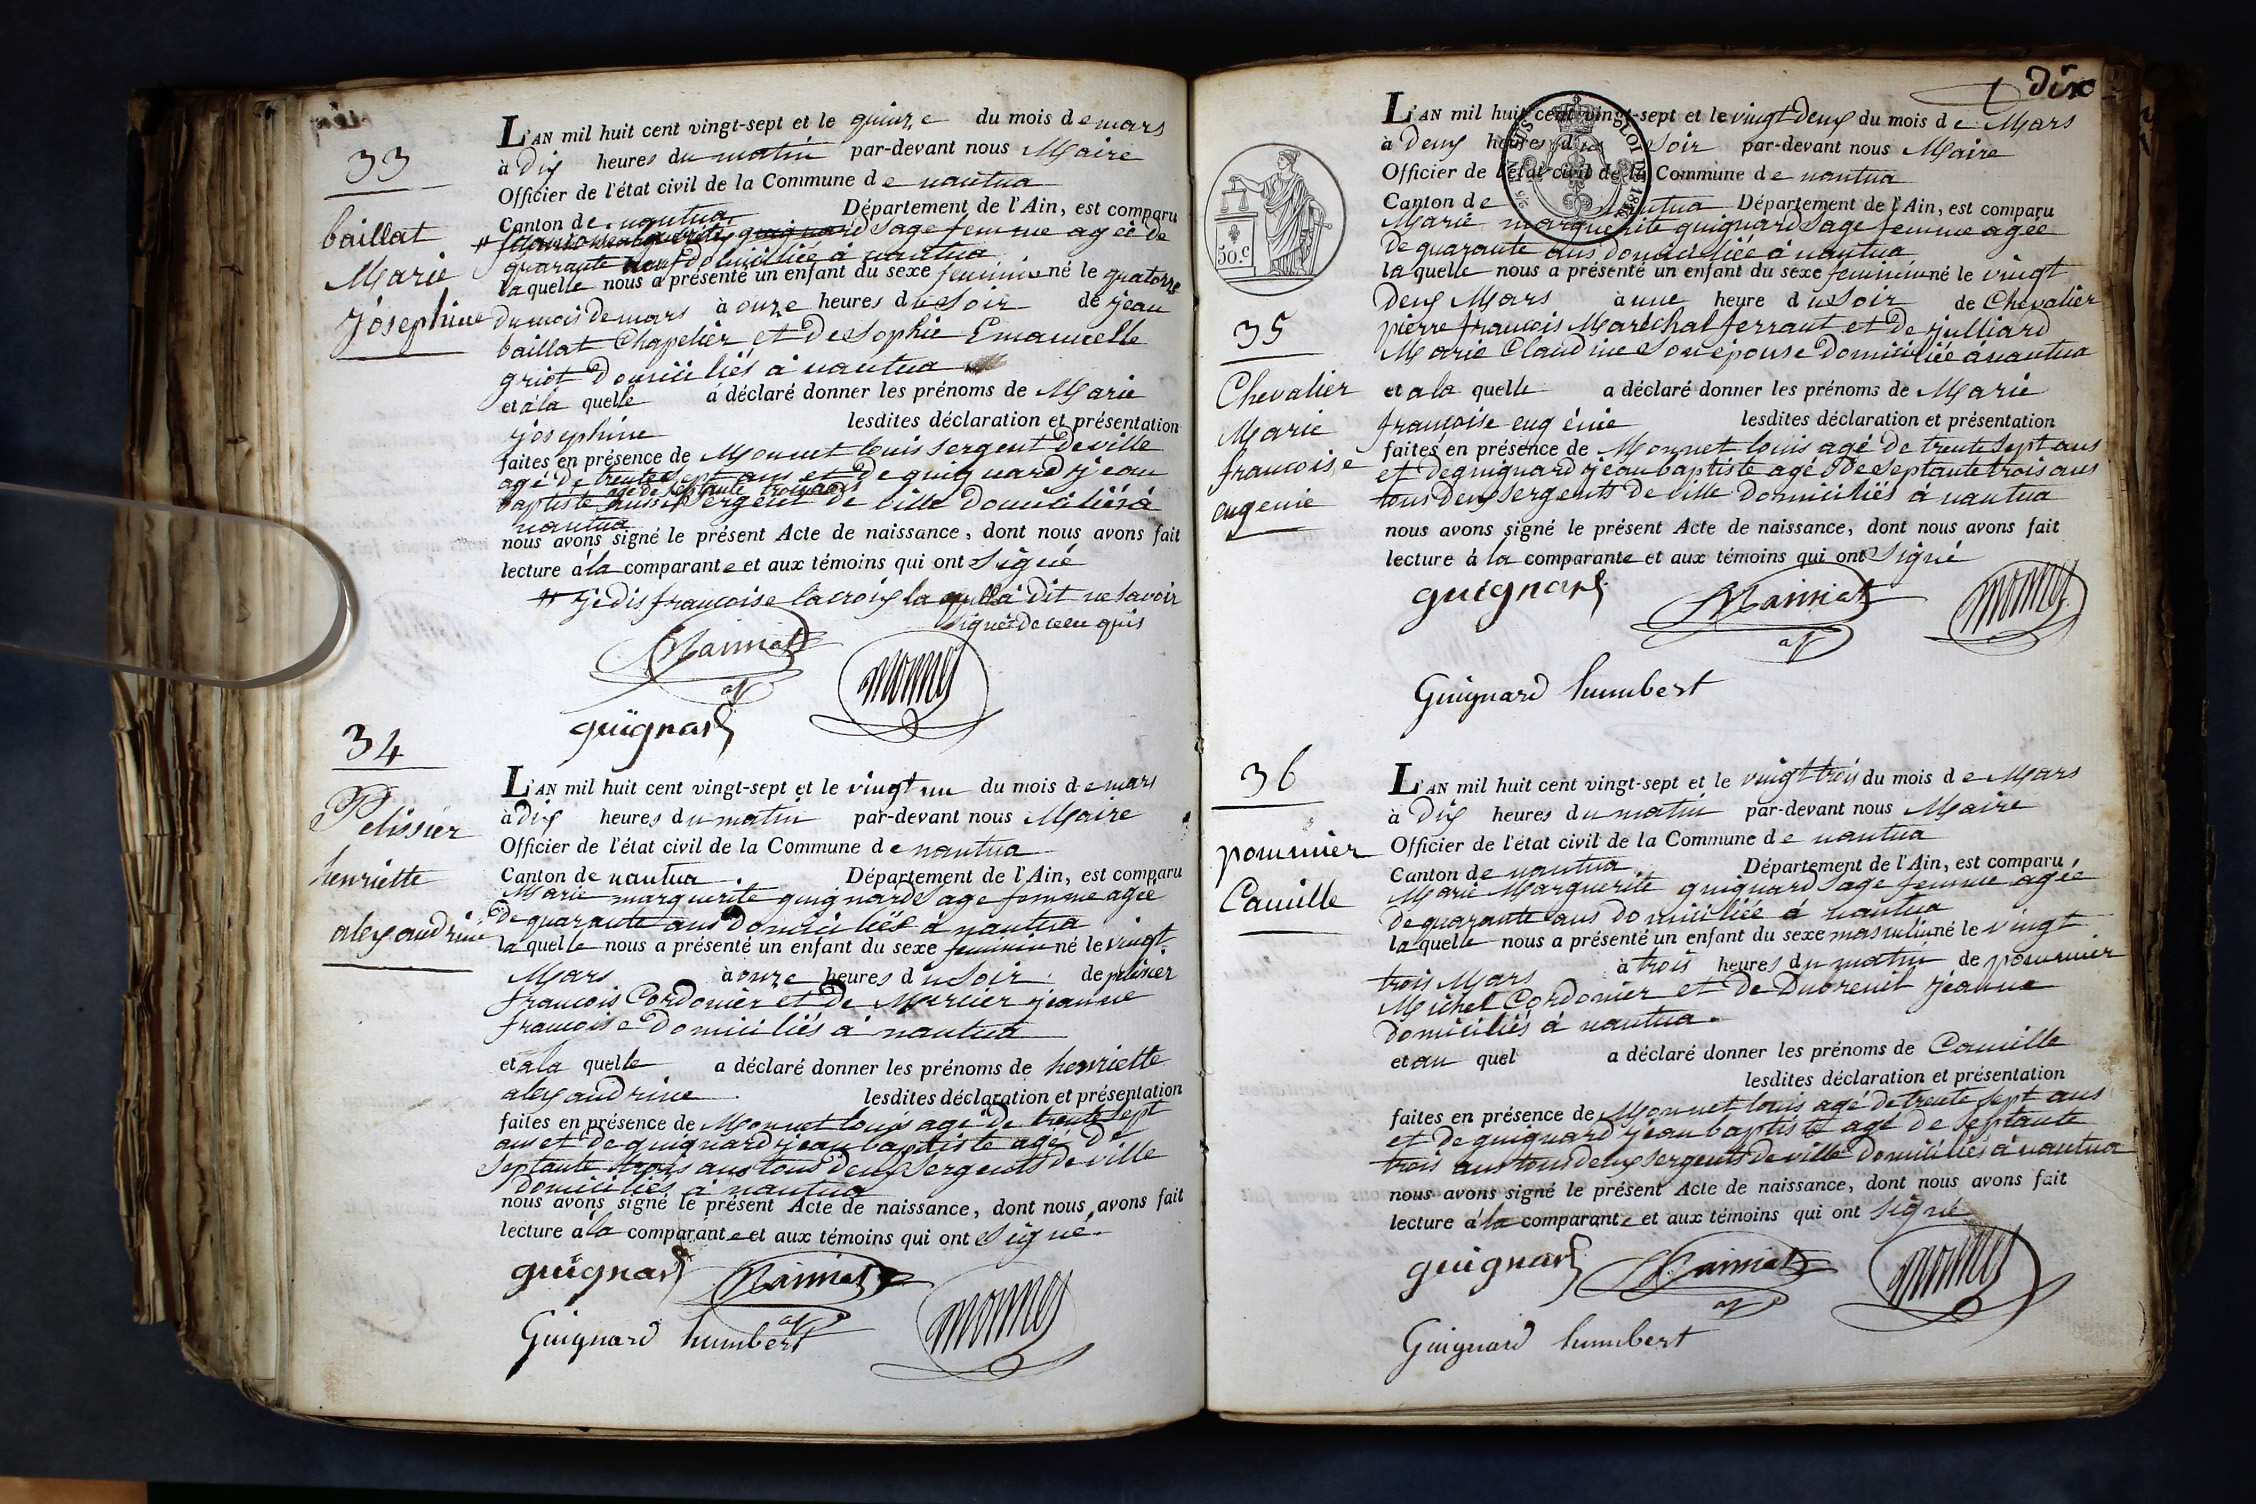 33
baillat
Marie
josephine
L'AN mil huit cent vingt-sept et le quinze du mois de mars
à dix heures du matin par-devant nous Maire
Officier de l'état civil de la Commune de nantua
Canton de nantua Département de l'Ain, est comparu
guignard sage femme agée de
quarante neuf domiciliée à nantua
laquelle nous a présenté un enfant du sexe feminin né le quatorze
du mois de mars à onze heures du soir de jean
baillat Chapelier et de Sophie Emanuelle
griot domiciliés à nantua
et à la quelle a déclaré donner les prénoms de Marie
josephine lesdites déclaration et présentation
faites en présence de Monnet louis sergent de ville
agé de trente sept ans et de guignard jean
agé de septante trois ans
baptiste aussi sergent de ville domiciliés à
nantua
nous avons signé le présent Acte de naissance, dont nous avons fait
lecture à la comparante et aux témoins qui ont signé
je dis francoise lacroix la quelle à dit ne savoir
signer de ce en quis
Mainiat
monnet
guignard
34
Pelissier
henriette
alexandrine
L'AN mil huit cent vingt-sept et le vingt un du mois de mars
à dix heures du matin par-devant nous Maire
Officier de l'état civil de la Commune de nantua
Canton de nantua Département de l'Ain, est comparu
Marie marguerite guignard sage femme agée
de quarante ans domiciliée à nantua
la quelle nous a présenté un enfant du sexe feminin né le vingt
Mars à onze heures du soir de
francois Cordonier et de Mercier jeanne
francoise domiciliés à nantua
et a la quelle a déclaré donner les prénoms de henriette
alexandrine lesdites déclaration et présentation
faites en présence de Monnet louis agé de trente sept
ans et de guignard jean baptiste agé de
septante trois ans tous deux sergents de ville
domiciliés à nantua
nous avons signé le présent Acte de naissance, dont nous avons fait
lecture à la comparante et aux témoins qui ont signé.
guignard Mainiat monnet
Guignard humbert
dix
50.C
LOI DE
35
Chevalier
Marie
francoise
eugenie
L'AN mil huit cent vingt-sept et le vingt deux du mois de Mars
à deux heures du soir par-devant nous Maire
Officier de l'état civil de la Commune de nantua
Canton de nantua Département de l'Ain, est comparu
Marie marguerite guignard sage femme agée
de quarante ans domiciliée à nantua
la quelle nous a présenté un enfant du sexe feminin né le vingt
deux Mars à une heure du soir de Chevalier
pierre francois Maréchal ferrant et de julliard
Marie Claudine son épouse domiciliée à nantua
et a la quelle a déclaré donner les prénoms de Marie
francoise eugénie lesdites déclaration et présentation
faites en présence de Monnet louis agé de trente sept ans
et de guignard jean baptiste agé de septante trois ans
tous deux sergents de ville domiciliés à nantua
nous avons signé le présent Acte de naissance, dont nous avons fait
lecture à la comparante et aux témoins qui ont signé
guignard Mainiat monnet
Guignard humbert
36
pommier
Camille
L'AN mil huit cent vingt-sept et le vingt trois du mois de Mars
à dix heures du matin par-devant nous Maire
Officier de l'état civil de la Commune de nantua
Canton de nantua Département de l'Ain, est comparu
Marie Marguerite guignard sage femme agée
de quarante ans domiciliée à nantua
la quelle nous a présenté un enfant du sexe masculin né le vingt
trois Mars à trois heures du matin de pommier
Michel Cordonier et de Dubreuil jeanne
domiciliés à nantua.
et au quel a déclaré donner les prénoms de Camille
lesdites déclaration et présentation
faites en présence de Monnet louis agé de trente sept ans
et de guignard jean baptiste agé de septante
trois ans tous deux sergents de ville domiciliés à nantua
nous avons signé le présent Acte de naissance, dont nous avons fait
lecture à la comparante et aux témoins qui ont signé
guignard Mainiat monnet
Guignard humbert